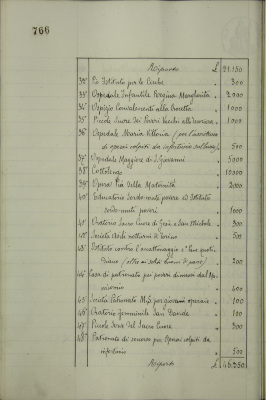 766
Riporto £ 21.150
32° Pio Istituto per le Cieche " 300
33° Ospedale Infantile Regina Margherita " 2000
34° Ospizio Convalescenti alla Crocetta " 1000
35° Piccole Suore dei Poveri Vecchi " 1000
36° Ospedale Maria Vittoria (per l'assistenza
di operai colpiti da infortunio sul lavoro) " 500
37° Ospedale Maggiore di S. Giovanni " 5000
38° Cottolengo " 10000
39° Opera Pia della Maternità " 2000
40° Educatorio Sordo-muti poveri ed Istituto
sordo-muti poveri 1000
41° Oratorio Sacro Cuore di Gesù e San Michele " 300
42° Società Asili notturni " 500
43° Istituto contro l'accattonaggio e "Pane quoti-
diano" 200
44° Casa di patronato pei poveri dimessi dal Ma-
nicomio " 400
45° Società Patronato M. S. per giovani operaie " 100
46° Oratorio femminile San Davide " 100
47° Piccole Suore del Sacro Cuore " 300
48° Patronato di soccorso per Operai colpiti da
infortunio " 500
Riporto £ 46.350